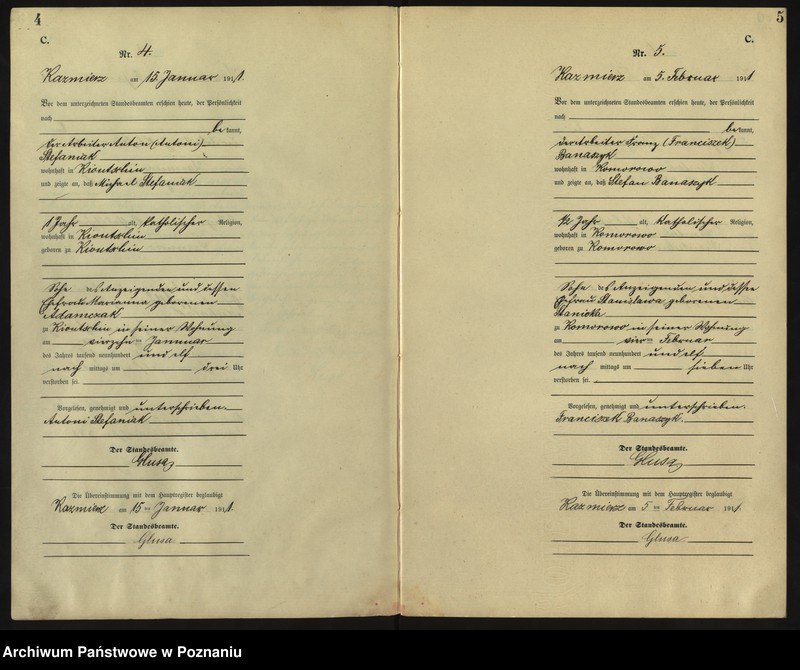 4
C.
Nr. 4.
Kazmierz am 15. Januar 1911.
Vor dem unterzeichneten Standesbeamten erschien heute, der Persönlichkeit
nach
bekannt,
der Arbeiter Anton (Antoni)
Stefaniak
wohnhaft in Kiontschin
und zeigte an, daß Michael Stefaniak
1 Jahr alt, katholischer Religion,
wohnhaft in Kiontschin
geboren zu Kiontschin
Sohn des Anzeigenden und dessen
Ehefrau Marianna geborenen
Adamczak
zu Kiontschin in seiner Wohnung
am vierzehnten Januar
des Jahres tausend neunhundert und elf
nach mittags um drei Uhr
verstorben sei.
Vorgelesen, genehmigt und unterschrieben.
Antoni Stefaniak
Der Standesbeamte.
Glusa
Die Übereinstimmung mit dem Hauptregister beglaubigt
Kazmierz am 15ten Januar 1911.
Der Standesbeamte.
Glusa.
5
C.
Nr. 5.
Kazmierz am 5. Februar 1911
Vor dem unterzeichneten Standesbeamten erschien heute, der Persönlichkeit
nach
bekannt,
der Arbeiter Franz (Franciszek)
Banaszyk
wohnhaft in Komorowo
und zeigte an, daß Stefan Banaszyk
1/2 Jahr alt, katholischer Religion,
wohnhaft in Komorowo
geboren zu Komorowo
Sohn des Anzeigenden und dessen
Ehefrau Stanislawa geborenen
zu Komorowo in seiner Wohnung
am vierten Februar
des Jahres tausend neunhundert und elf
nach mittags um sieben Uhr
verstorben sei.
Vorgelesen, genehmigt und unterschrieben.
Franciszek Banaszyk.
Der Standesbeamte.
Glusa
Die Übereinstimmung mit dem Hauptregister beglaubigt
Kazmierz am 5ten Februar 1911.
Der Standesbeamte.
Glusa
Archiwum Państwowe w Poznaniu